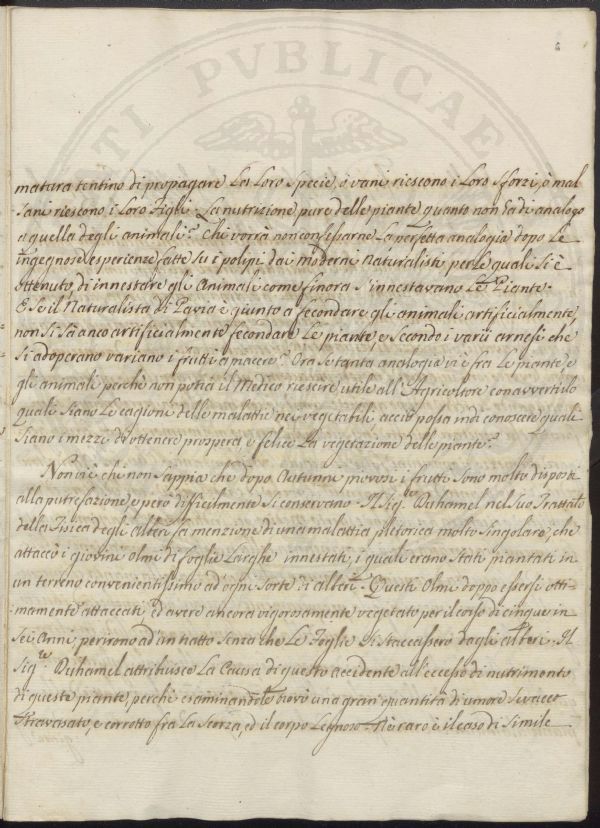 matura tentino di propagare la loro specie, ò vani riescono i loro sforzi, ò mal
sani riescono i loro figli. La nutrizione pure delle piante quanto non hà di analogo
a quella degli animali? Chi vorrà non confessarne la perfetta analogia dopo le
ingegnose esperienze fatte su i polipi dai moderni naturalisti per le quali si è
ottenuto di innestare gli Animali come finora s'innestavano le Piante.
E se il Naturalista di Pavia è giunto a fecondare gli animali artificialmente,
non si sà anco artificialmente fecondare le piante, e secondo i varii arnesi che
si adoperano variano i frutti a piacere? Ora se tanta analogia vi è fra le piante, e
gli animali perchè non potrà il Medico riescire utile all'Agricoltore con avvertirlo
quali siano le cagioni delle malattie nei vegetabili acciò possa indi conoscere quali
siano i mezzi di ottenere prospera, e felice la vegetazione delle piante?
Non v'è chi non sappia che dopo Autunni piovosi i frutti sono molto disposti
alla putrefazione, e però difficilmente si conservano. Il Sig.re Duhamel nel suo Trattato
della Fisica degli alberi fa menzione di una malattia pletorica molto singolare, che
attaccò i giovini olmi di foglie larghe innestati, i quali erano stati piantati in
un terreno convenientissimo ad ogni sorte di alberi. Questi Olmi doppo essersi otti-
mamente attaccati, ed avere ancora vigorosamente vegetato per il corso di cinque in
sei Anni, perirono ad un tratto senza che le foglie si staccassero dagli alberi. Il
Sig.re Duhamel attribuisce la causa di questo accidente all'eccesso di nutrimento
di queste piante, perchè esaminandole trovò una gran quantità di umore
stravasato, e corrotto fra la scorza, ed il corpo legnoso. Nè raro è il caso di simile
PVBLICAE